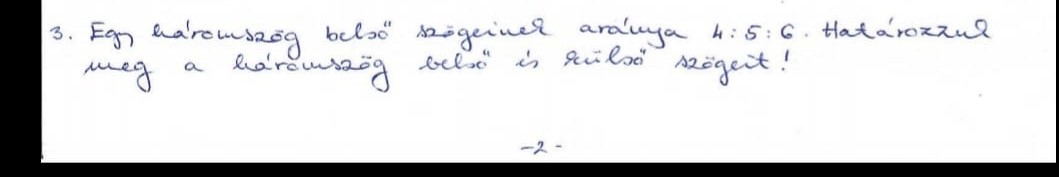 3. Egy háromszög belső szögeinek aránya 4:5:6. Határozzuk
meg a háromszög belső és külső szögeit!
-2-